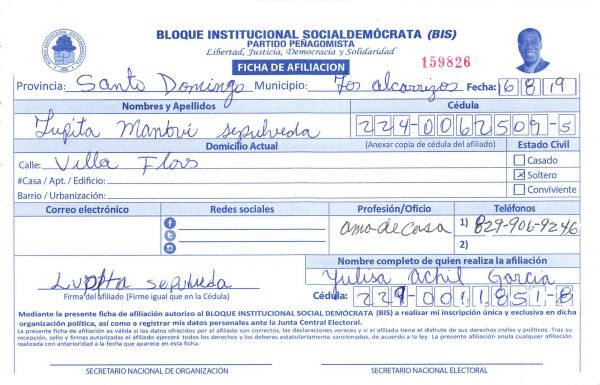 BLOQUE INSTITUCIONAL SOCIALDEMÓCRATA (BIS)
PARTIDO PEÑAGOMISTA
Libertad, Justicia, Democracia y Solidaridad
FICHA DE AFILIACION
159826
Provincia: Santo Domingo Municipio: Los alcarrizos Fecha: 6 8 19
Nombres y Apellidos Cédula
Lupita Mantvi sepulveda 224-0062509-5
Domicilio Actual (Anexar copia de cédula del afiliado) Estado Civil
Calle: Villa Flors Casado
#Casa / Apt. / Edificio: Soltero
Barrio / Urbanización: Conviviente
Correo electrónico Redes sociales Profesión/Oficio Teléfonos
ama de casa 1) 829-906-9246
2)
Nombre completo de quien realiza la afiliación
Lupita sepulveda Yulisa Achil Garcia
Firma del afiliado (Firme igual que en la Cédula) Cédula: 229-0011851-8
Mediante la presente ficha de afiliación autorizo al BLOQUE INSTITUCIONAL SOCIAL DEMÓCRATA (BIS) a realizar mi inscripción única y exclusiva en dicha
organización política, así como a registrar mis datos personales ante la Junta Central Electoral.
La presente ficha de afiliación es válida si los datos ofrecidos por el afiliado son correctos, las declaraciones veraces y si el afiliado tiene el disfrute de sus derechos civiles y políticos. Tras su
recepción, sello y firmas autorizadas el afiliado ejercerá todos los derechos y deberes estatutariamente sancionados, de acuerdo a la ley. La presente afiliación anula cualquier afiliación
realizada con anterioridad a la fecha que aparece en esta ficha.
SECRETARIO NACIONAL DE ORGANIZACIÓN SECRETARIO NACIONAL ELECTORAL